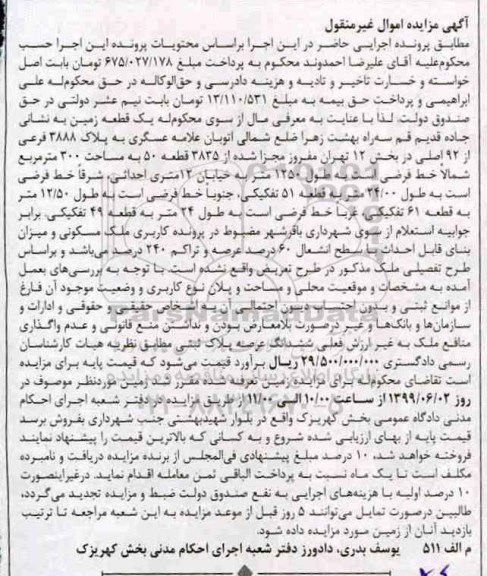 آگهی مزایده اموال غیرمنقول
مطابق پرونده اجرایی حاضر در این اجرا براساس محتویات پرونده این اجرا حسب
محکوم‌علیه آقای علیرضا احمدوند محکوم به پرداخت مبلغ ۶۷۵/۰۲۷/۱۷۸ تومان بابت اصل
خواسته و خسارت تاخیر و تادیه و هزینه دادرسی و حق‌الوکاله در حق محکوم‌له علی
ابراهیمی و پرداخت حق بیمه به مبلغ ۱۳/۱۱۰/۵۳۱ تومان بابت نیم عشر دولتی در حق
صندوق دولت، لذا با عنایت به معرفی مال از سوی محکوم‌له یک قطعه زمین به نشانی
جاده قدیم قم سه‌راه بهشت زهرا ضلع شمالی اتوبان علامه عسگری به پلاک ۳۸۸۸ فرعی
از ۹۲ اصلی در بخش ۱۲ تهران مفروز مجزا شده از ۳۸۳۵ قطعه ۵۰ به مساحت ۳۰۰ مترمربع
شمالاً خط فرضی است به طول ۱۲۵۰ متر به خیابان ۱۲متری احداثی، شرقاً خط فرضی
است به طول ۲۴/۰۰ متر به قطعه ۵۱ تفکیکی، جنوباً خط فرضی است به طول ۱۲/۵۰ متر
به قطعه ۶۱ تفکیکی، غرباً خط فرضی است به طول ۲۴ متر به قطعه ۴۹ تفکیکی، برابر
جوابیه استعلام از سوی شهرداری باقرشهر مضبوط در پرونده کاربری ملک مسکونی و میزان
بنای قابل احداث با سطح اشغال ۶۰ درصد عرصه و تراکم ۲۴۰ درصد می‌باشد و براساس
طرح تفصیلی ملک مذکور در طرح تعریض واقع نشده است. با توجه به بررسی‌های بعمل
آمده به مشخصات و موقعیت محلی و مساحت و پلان نوع کاربری و وضعیت موجود آن فارغ
از موانع ثبتی و بدون احتساب دیون احتمالی آن به اشخاص حقیقی و حقوقی و ادارات و
سازمان‌ها و بانک‌ها و غیر درصورت بلامعارض بودن و نداشتن منع قانونی و عدم واگذاری
منافع ملک به غیر ارزش فعلی ششدانگ عرصه پلاک ثبتی مطابق نظریه هیات کارشناسان
رسمی دادگستری ۲۹/۵۰۰/۰۰۰/۰۰۰ ریال برآورد قیمت می‌شود که قیمت پایه برای مزایده
است تقاضای محکوم‌له برای مزایده زمین تعرفه شده مقرر شد زمین موردنظر موصوف در
روز ۱۳۹۹/۰۶/۰۲ از ساعت ۱۰/۰۰ الی ۱۱/۰۰ از طریق مزایده در دفتر شعبه اجرای احکام
مدنی دادگاه عمومی بخش کهریزک واقع در بلوار شهیدبهشتی جنب شهرداری بفروش برسد
قیمت پایه از بهای ارزیابی شده شروع و به کسانی که بالاترین قیمت را پیشنهاد نمایند
فروخته خواهد شد، ۱۰ درصد مبلغ پیشنهادی فی‌المجلس از برنده مزایده دریافت و نامبرده
مکلف است تا یک ماه نسبت به پرداخت الباقی ثمن معامله اقدام نماید. درغیراینصورت
۱۰ درصد اولیه با هزینه‌های اجرایی به نفع صندوق دولت ضبط و مزایده تجدید می‌گردد،
طالبین درصورت تمایل می‌توانند ۵ روز قبل از موعد مزایده به این شعبه مراجعه تا ترتیب
بازدید آنان از زمین مورد مزایده داده شود.
م الف ۵۱۱ یوسف بدری، دادورز دفتر شعبه اجرای احکام مدنی بخش کهریزک